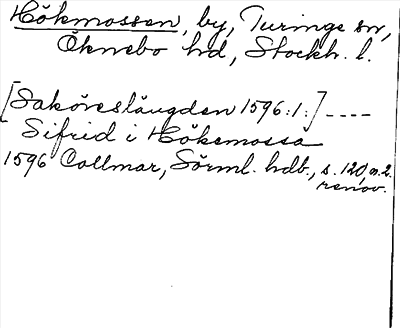 Hökmossen, by, Turinge sn,
Öknebo hd, Stockh. l.
[Saköreslängden 1596:1:] ----
Sifrid i Hökemossa
1596 Collmar, Sörml. hdb., s. 120, n. 2.
renov.